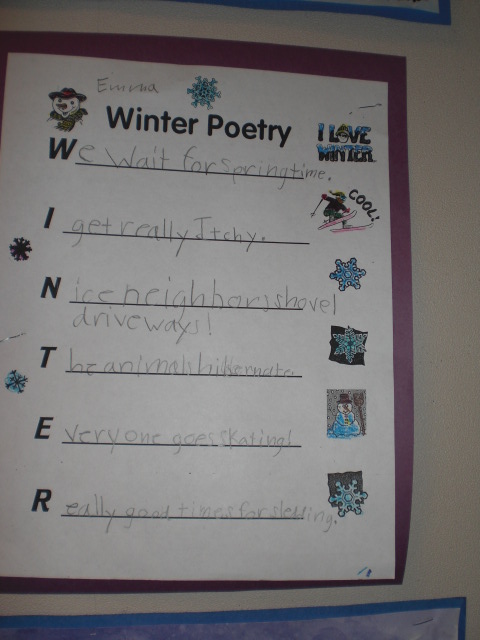 Emma
Winter Poetry
I LOVE WINTER
We wait for springtime.
COOL!
I get really Itchy.
Nice neighbors shovel
driveways!
The animals hibernate.
Everyone goes skating!
Really good times for sledding.